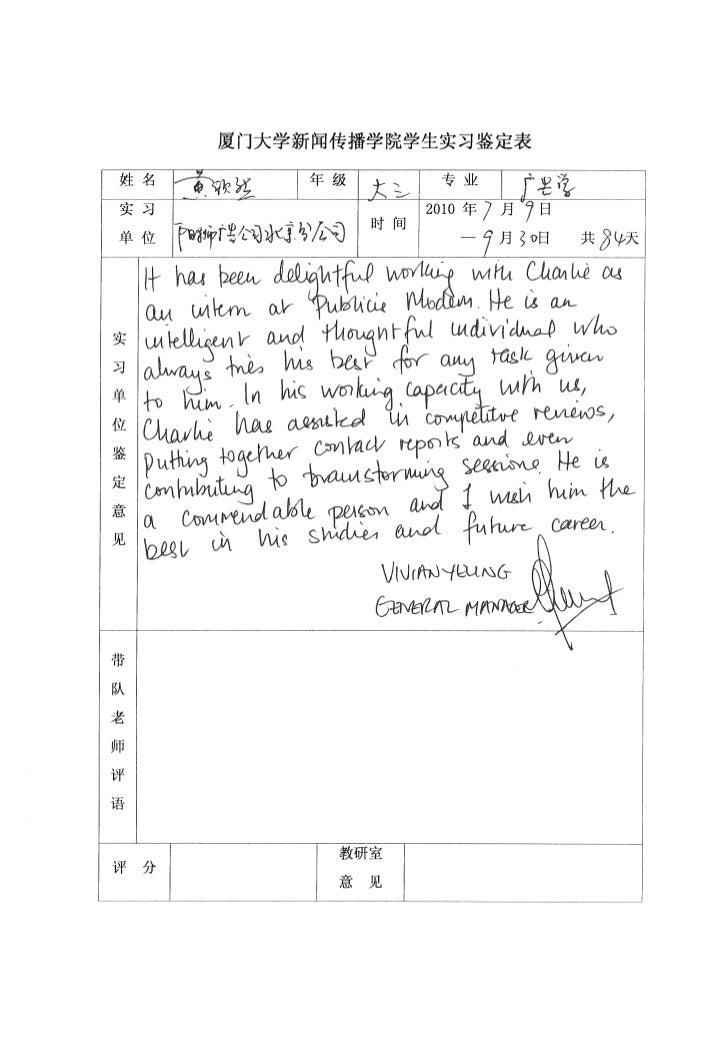 厦门大学新闻传播学院学生实习鉴定表
姓 名 黄 年 级 大三 专 业 广告学
实 习 单 位 阳狮广告公司北京分公司 时 间 2010 年 7 月 9 日
— 9 月 30 日 共 84 天
实习单位鉴定意见
It has been delightful working with Charlie as
an intern at Publicis Modem. He is an
intelligent and thoughtful individual who
always tries his best for any task given
to him. In his working capacity with us,
Charlie has assisted in competitive reviews,
putting together contact reports and even
contributing to brainstorming sessions. He is
a commendable person and I wish him the
best in his studies and future career.
VIVIAN YEUNG
GENERAL MANAGER
带队老师评语
评 分 教研室
意 见